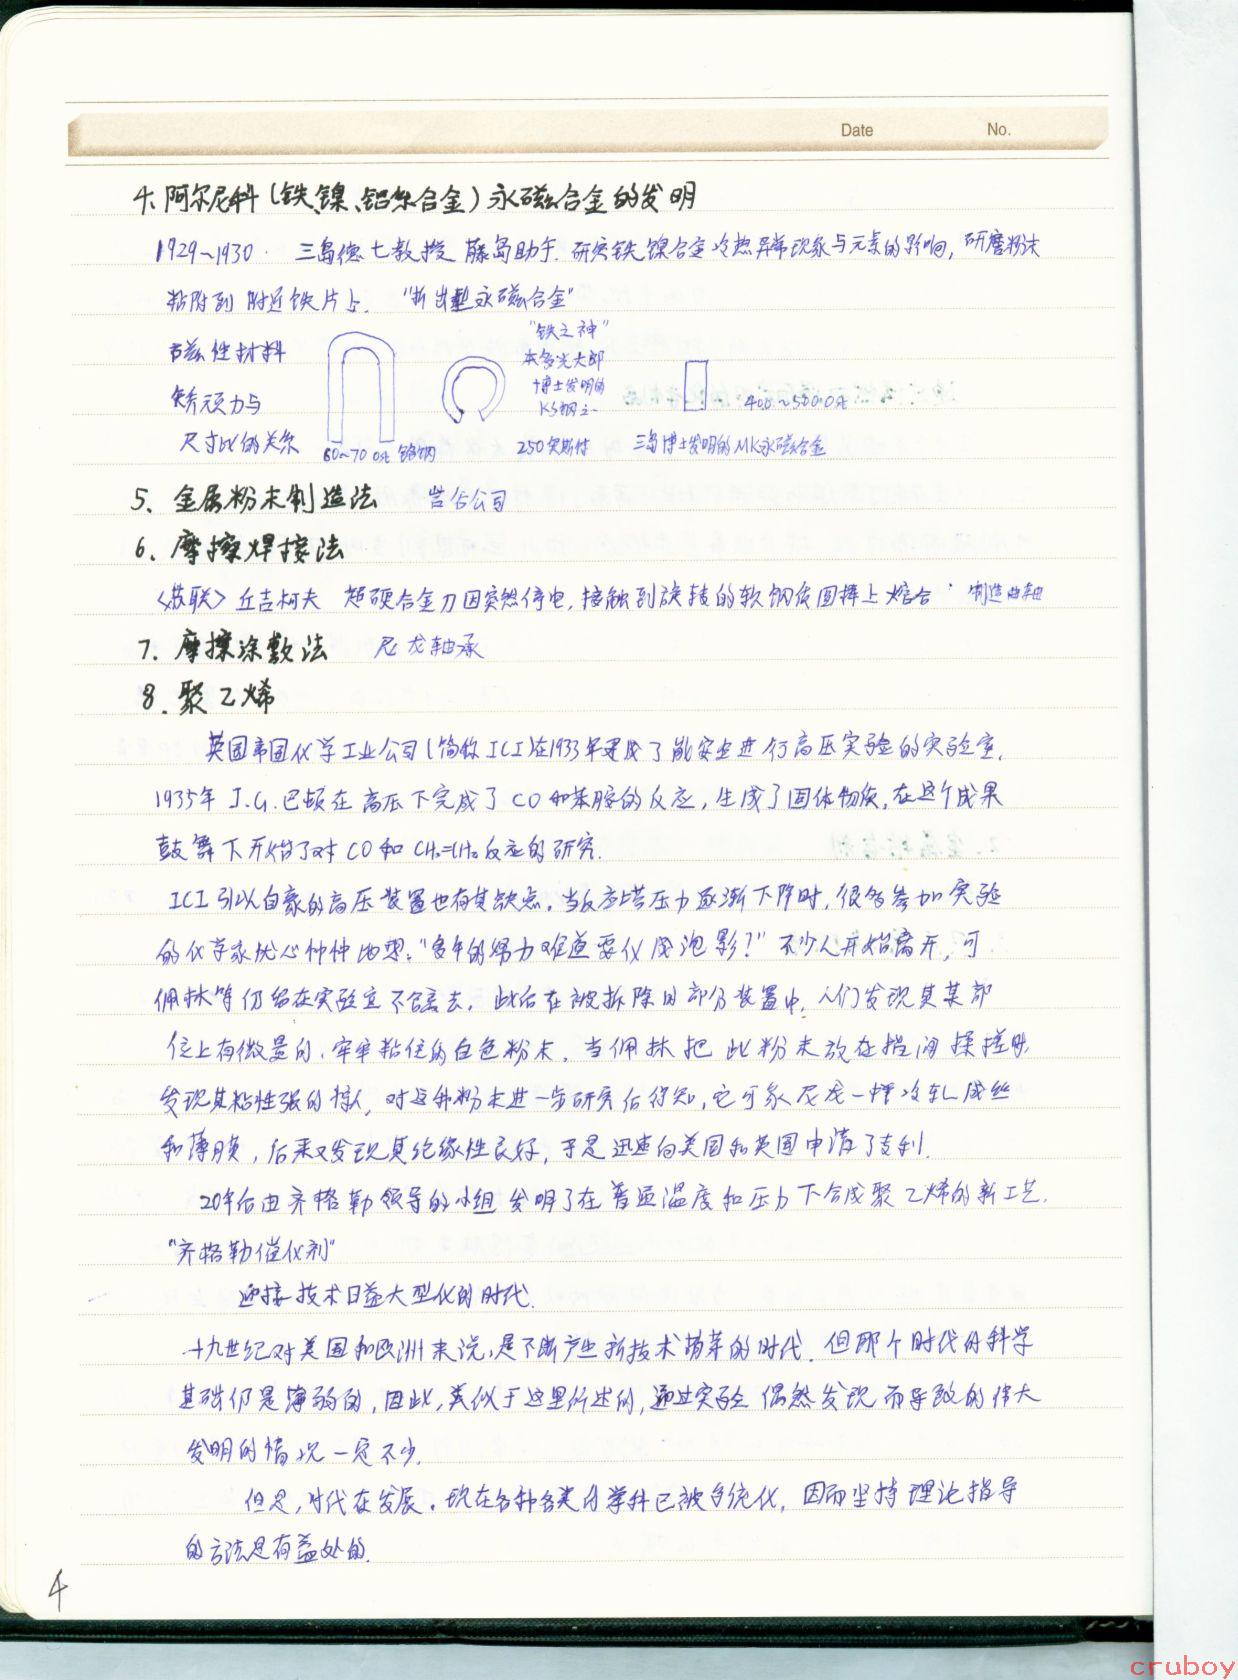 Date No.
4. 阿尔尼科(铁、镍、铝系合金)永磁合金的发明
1929~1930. 三岛德七教授 藤岛助手. 研究铁镍合金冷热异常现象与元素的影响, 研磨粉沫
粘附到附近铁片上. "析出型永磁合金"
磁性材料
矫顽力与
尺寸比的关系
60~70 Oe 铬钢
"铁之神"
本多光太郎
博士发明的
KS钢之一
250奥斯忒
400~500 Oe
三岛博士发明的MK永磁合金
5、金属粉末制造法 公司
6、摩擦焊接法
<苏联> 丘吉柯夫 超硬合金刀因突然停电, 接触到旋转的软钢质圆棒上熔合 制造曲轴
7. 摩擦涂敷法 尼龙轴承
8. 聚乙烯
英国帝国化学工业公司(简称ICI)在1933年建成了能安全进行高压实验的实验室.
1935年 J.G.巴顿在高压下完成了CO和苯胺的反应, 生成了固体物质, 在这个成果
鼓舞下开始了对CO和CH₂=CH₂反应的研究.
ICI引以自豪的高压装置也有其缺点. 当反应塔压力逐渐下降时, 很多参加实验
的化学家忧心忡忡地想:"多年的努力难道要化成泡影?" 不少人开始离开, 可
佩林等仍留在实验室不舍离去. 此后在被拆除的部分装置中, 人们发现其某部
位上有微量的、牢牢粘住的白色粉末. 当佩林把此粉末放在指间揉搓时,
发现其粘性强的惊人, 对这种粉末进一步研究后得知, 它可象尼龙一样冷轧成丝
和薄膜, 后来又发现其绝缘性良好, 于是迅速向美国和英国申请了专利.
20年后由齐格勒领导的小组发明了在普通温度和压力下合成聚乙烯的新工艺.
"齐格勒催化剂"
迎接技术日益大型化的时代.
十九世纪对美国和欧洲来说, 是不断产生新技术萌芽的时代. 但那个时代的科学
基础仍是薄弱的, 因此, 类似于这里所述的, 通过实验偶然发现而导致的伟大
发明的情况一定不少.
但是, 时代在发展. 现在各种各类的学科已被系统化, 因而坚持理论指导
的方法是有益处的.
4
cruboy